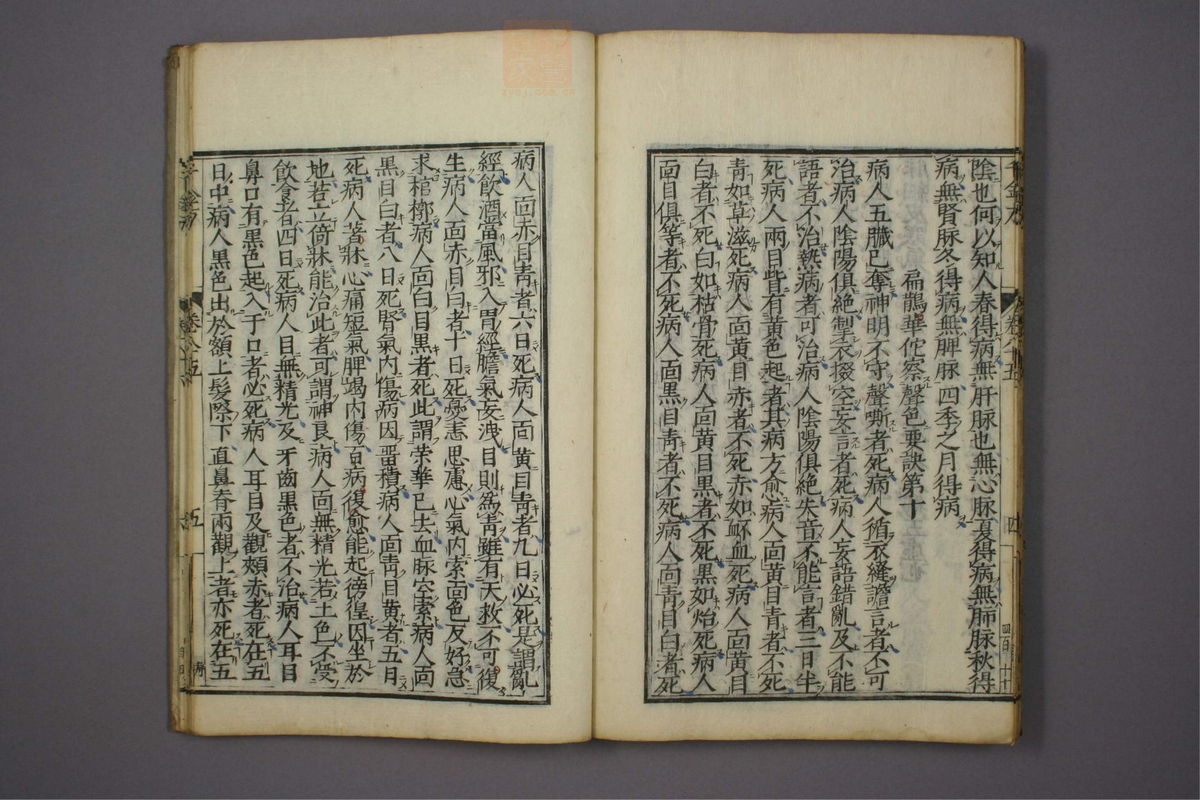 陰也何以知人春得病無肝脉也無心脉夏得病無肺脉秋得
病無腎脉冬得病無脾脉四季之月得病
扁鵲華佗察聲色要訣第十
病人五臟已奪神明不守聲嘶者死病人循衣縫譫言者不可
治病人陰陽俱絶掣衣掇空妄言者死病人妄語錯亂及不能
語者不治熱病者可治病人陰陽俱絶失音不能言者三日半
死病人兩目眥有黃色起者其病方愈病人面黃目青者不死
青如草滋死病人面黃目赤者不死赤如衃血死病人面黃目
白者不死白如枯骨死病人面黃目黑者不死黑如炲死病人
面目俱等者不死病人面黑目青者不死病人面青目白者死
病人面赤目青者六日死病人面黃目青者九日必死是謂亂
經飲酒當風邪入胃經膽氣妄洩目則爲青雖有天救不可復
生病人面赤目白者十日死憂恚思慮心氣内索面色反好急
求棺槨病人面白目黑者死此謂榮華已去血脉空索病人面
黑目白者八日死腎氣内傷病因畱積病人面青目黃者五日
死病人著牀心痛短氣脾竭内傷百病復愈能起傍徨因坐於
地若立倚牀能治此者可謂神良病人面無精光若土色不受
飲食者四日死病人目無精光及牙齒黑色者不治病人耳目
鼻口有黑色起入于口者必死病人耳目及觀頰赤者死在五
日中病人黑色出於額上髮際下直鼻脊兩觀上者亦死在五
千金方
卷八十五
四
千金方
卷八十五
五